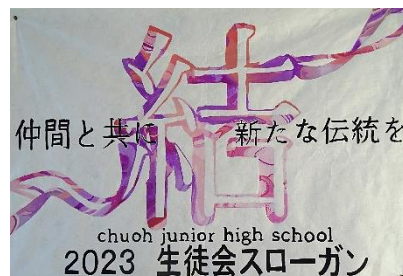 結
仲間と共に 新たな伝統を
chuoh junior high school
2023 生徒会スローガン